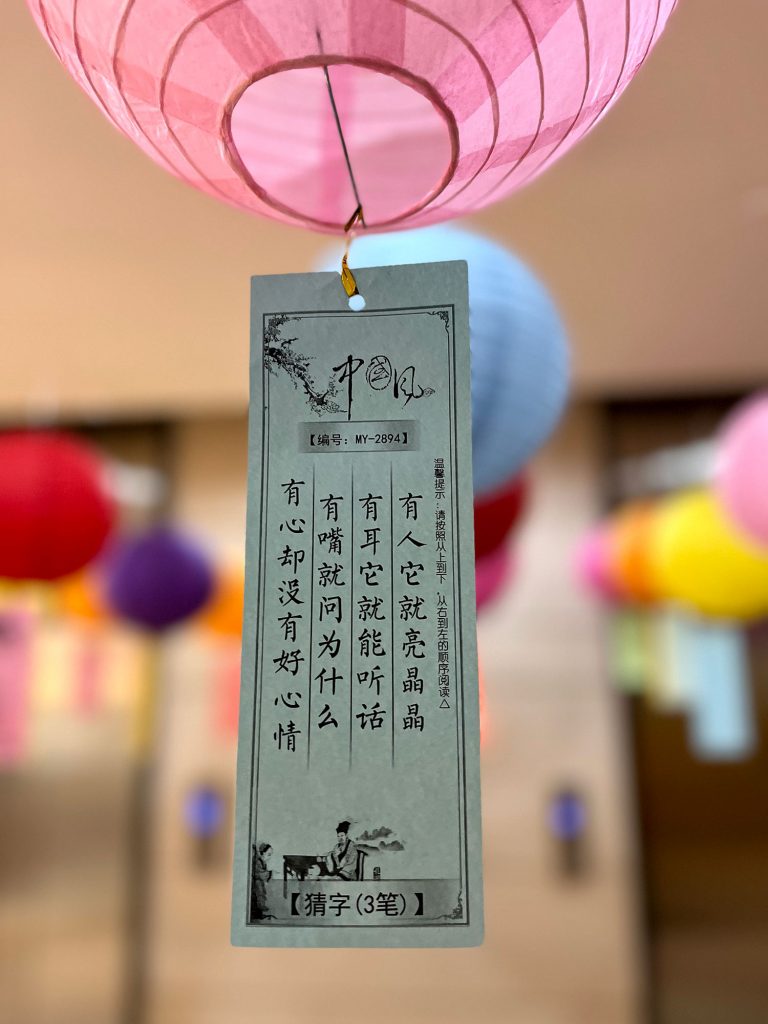 中国风
【编号：MY-2894】
温馨提示：请按照从上到下，从右到左的顺序阅读△
有人它就亮晶晶
有耳它就能听话
有嘴就问为什么
有心却没有好心情
【猜字(3笔)】